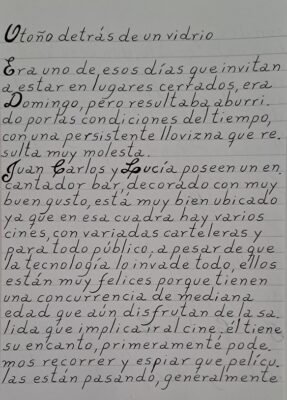 Otoño detrás de un vidrio
Era uno de esos días que invitan
a estar en lugares cerrados, era
Domingo, pero resultaba aburri.
do por las condiciones del tiempo,
con una persistente llovizna que re.
sulta muy molesta.
Juan Carlos y Lucía poseen un en.
cantador bar, decorado con muy
buen gusto, está muy bien ubicado
ya que en esa cuadra hay varios
cines, con variadas carteleras y
para todo público. a pesar de que
la tecnología lo invade todo, ellos
están muy felices porque tienen
una concurrencia de mediana
edad que aún disfrutan de la sa.
lida que implica ir al cine. él tiene
su encanto, primeramente pode.
mos recorrer y espiar que pelícu.
las están pasando, generalmente